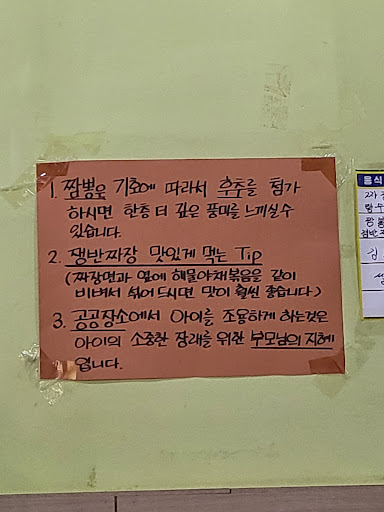 1. 짬뽕은 기호에 따라서 후추를 첨가
하시면 한층 더 깊은 풍미를 느끼실수
있습니다.
2. 쟁반짜장 맛있게 먹는 Tip
(짜장면과 옆에 해물야채볶음을 같이
비벼서 섞어드시면 맛이 훨씬 좋습니다)
3. 공공장소에서 아이를 조용하게 하는것은
아이의 소중한 장래를 위한 부모님의 지혜
입니다.
음식